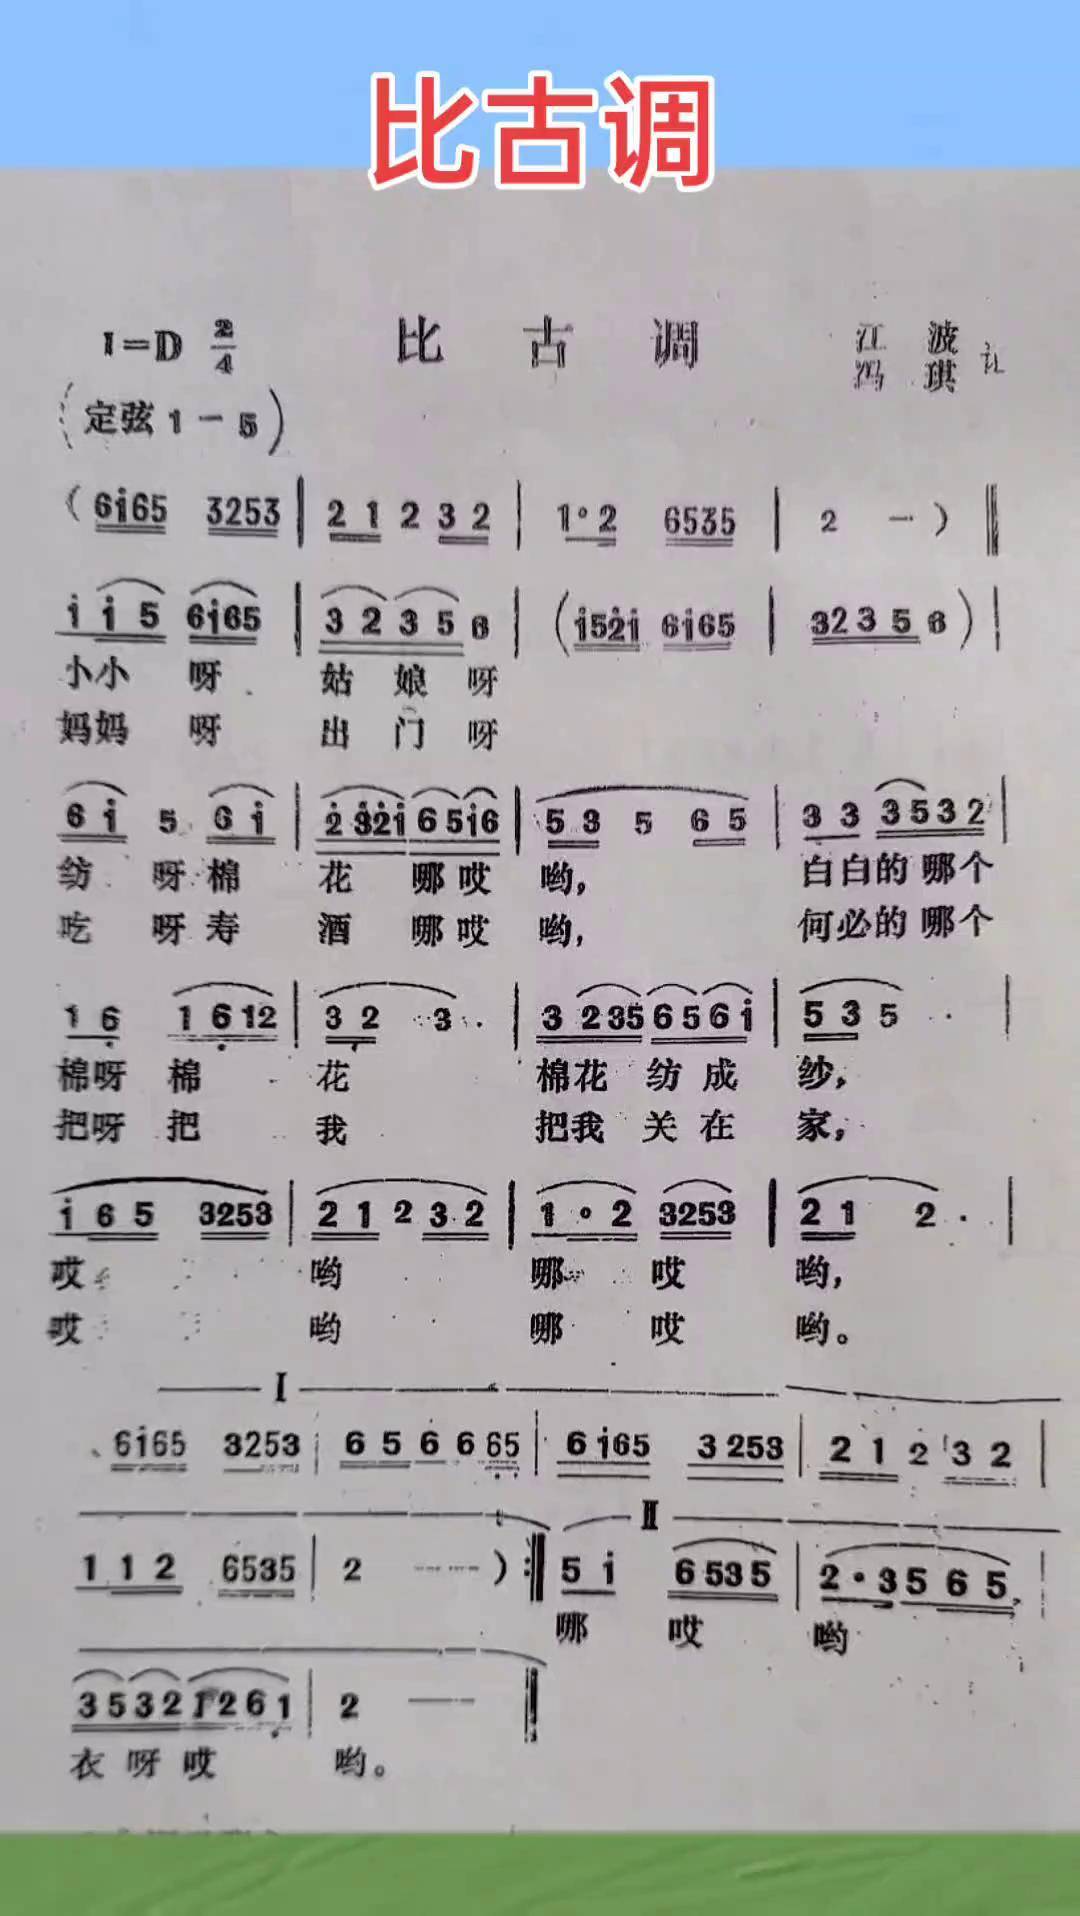 比古调
1=D 2/4 比古调 江波
冯琪 记
(定弦 1—5)
(6i65 3253 | 21 2 32 | 1·2 6535 | 2 — ) ‖
i i5 6i65 | 3235 6 | (i52i 6i65 | 3235 6) |
小小 呀 姑 娘 呀
妈妈 呀 出 门 呀
6i 5 6i | 232i 65i6 | 53 5 65 | 33 3532 |
纺 呀棉 花 哪哎 哟, 白白的 哪个
吃 呀寿 酒 哪哎 哟, 何必的 哪个
16 1612 | 32 3· | 3235 656i | 53 5· |
棉呀 棉 花 棉花 纺 成 纱,
把呀 把 我 把我 关 在 家,
i65 3253 | 21 2 32 | 1·2 3253 | 21 2· |
哎 哟 哪 哎 哟,
哎 哟 哪 哎 哟。
I
6i65 3253 | 65 66 65 | 6i65 3253 | 21 2 32 |
II
112 6535 | 2 — ) :‖ 5i 6535 | 2·3 565 |
哪 哎 哟
3532 1261 | 2 — ‖
衣 呀 哎 哟。